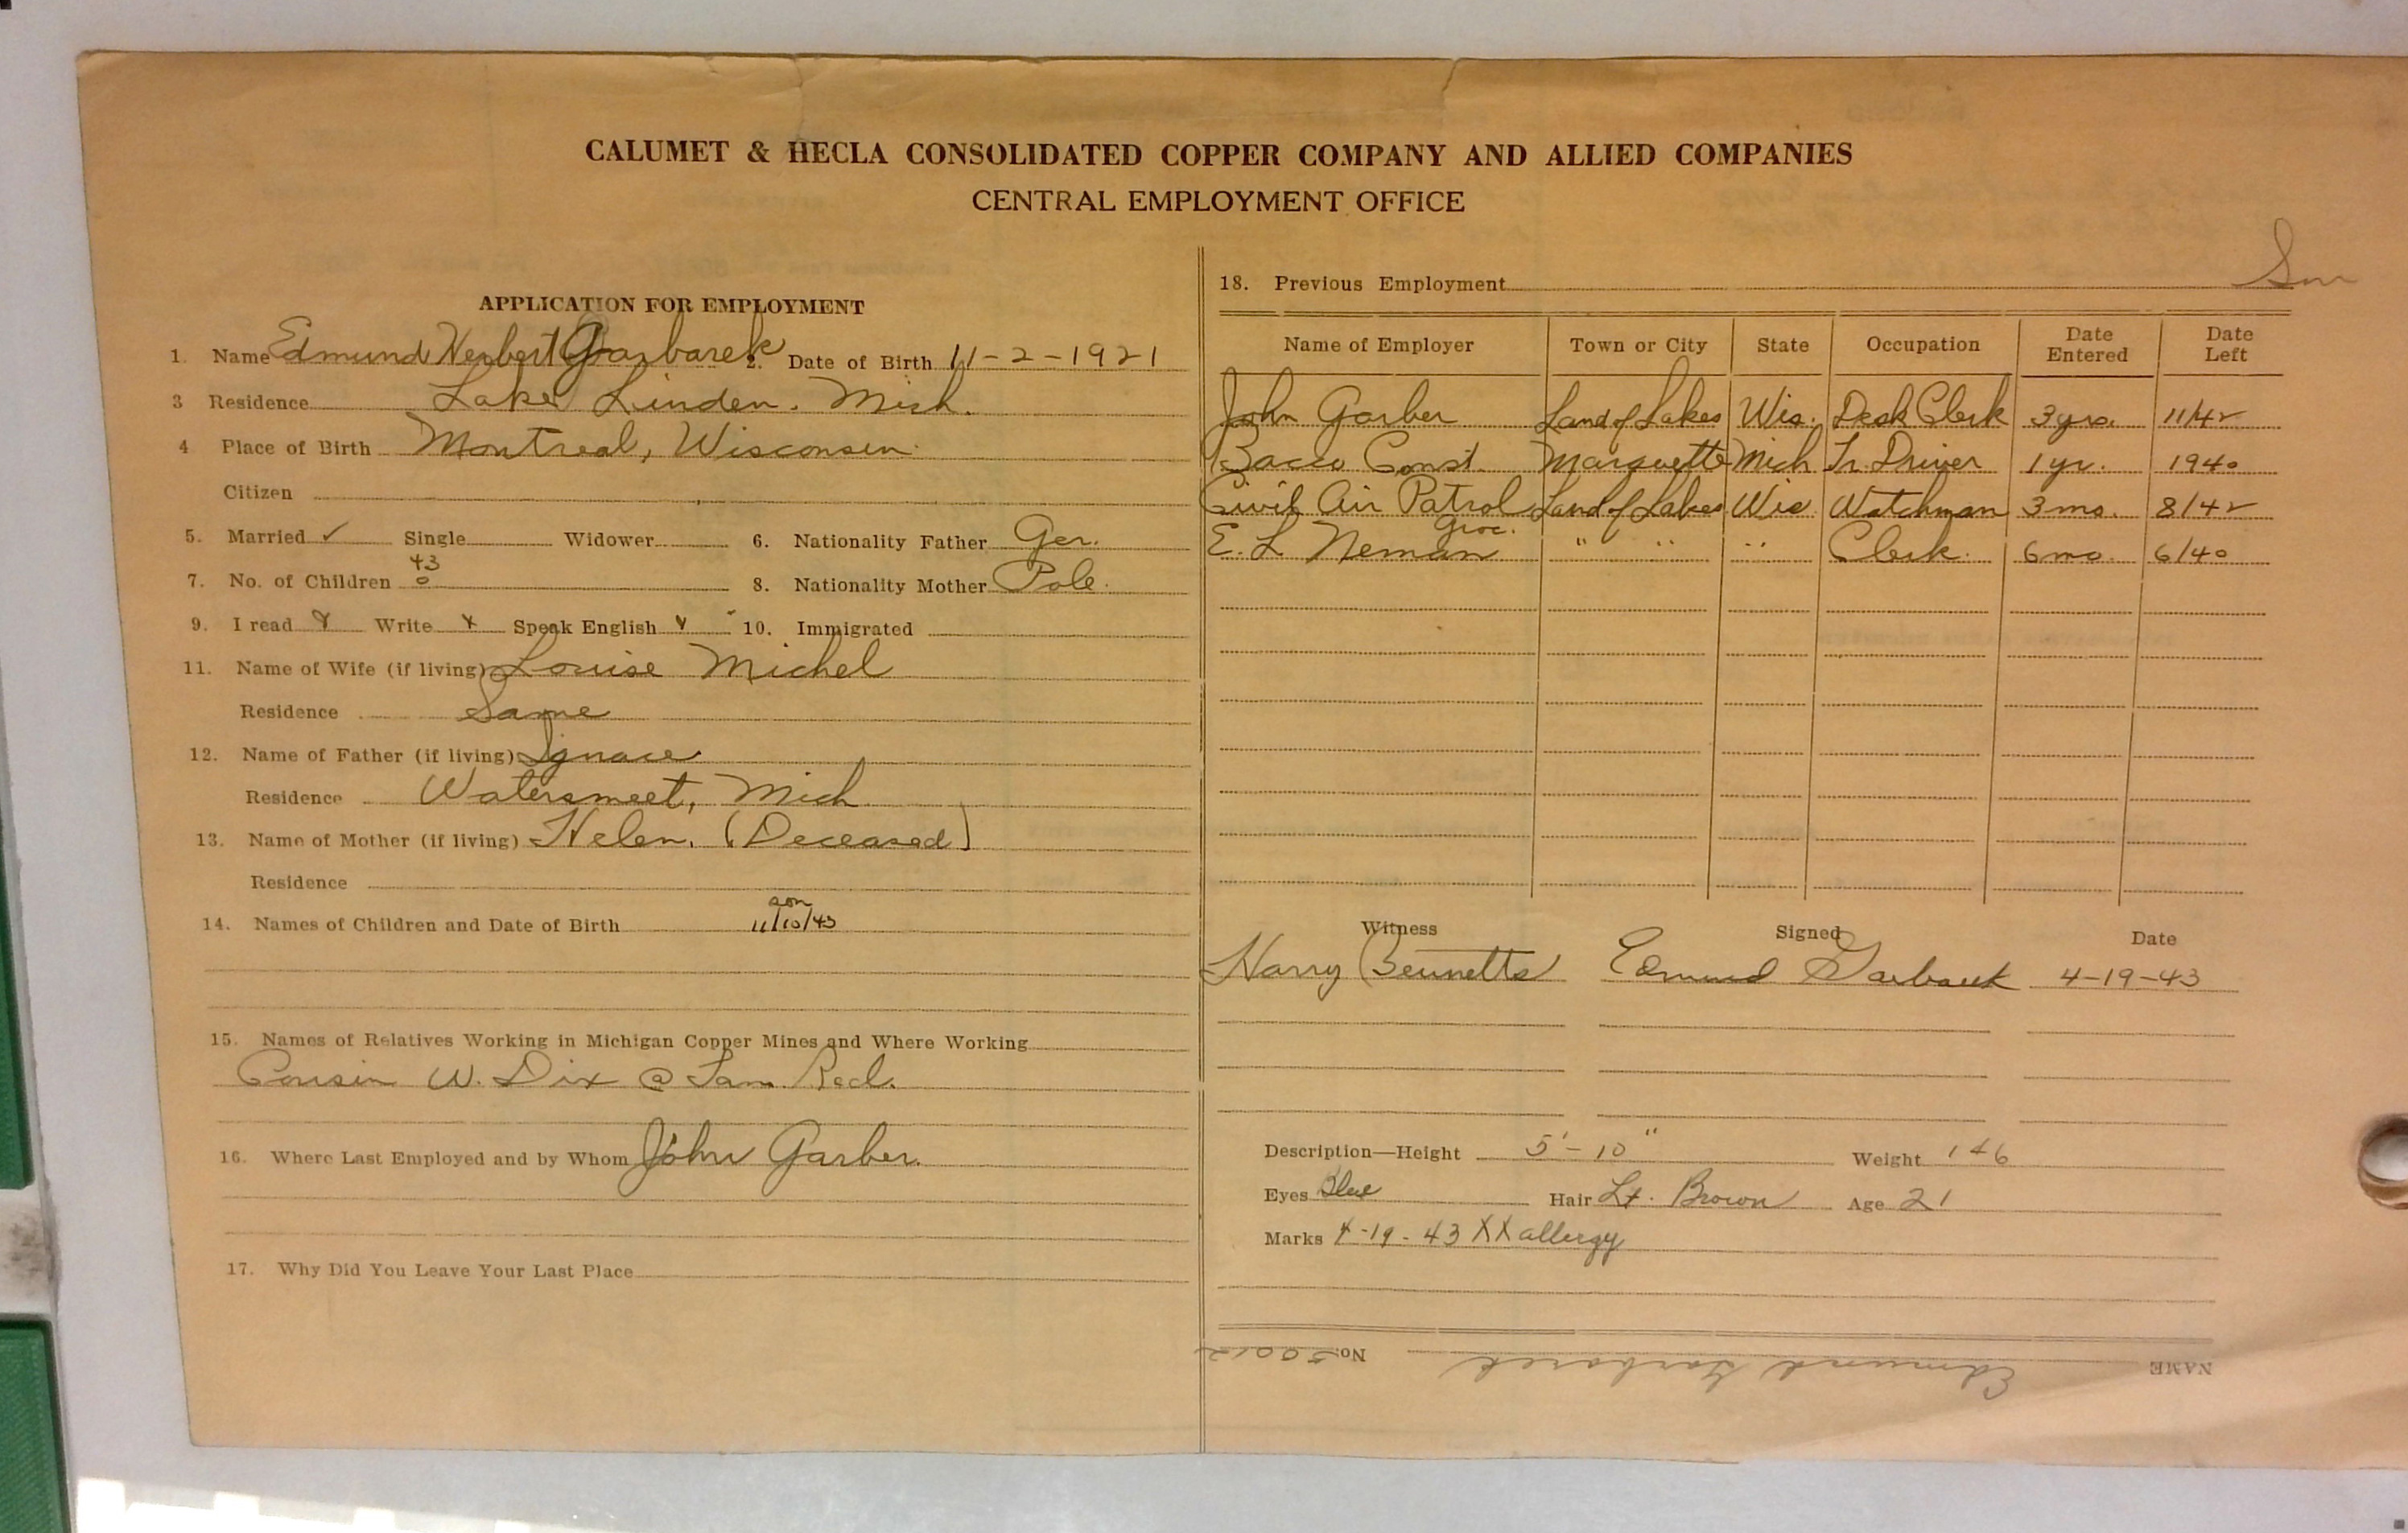 CALUMET & HECLA CONSOLIDATED COPPER COMPANY AND ALLIED COMPANIES
CENTRAL EMPLOYMENT OFFICE
APPLICATION FOR EMPLOYMENT
1. Name Edmund Herbert Garbarek 2. Date of Birth 11-2-1921
3 Residence Lake Linden. Mich.
4 Place of Birth Montreal, Wisconsin.
Citizen
5. Married ✓ Single Widower 6. Nationality Father Ger.
43
7. No. of Children 0 8. Nationality Mother Pole.
9. I read Write x Speak English 10. Immigrated
11. Name of Wife (if living) Louise Michel
Residence Same
12. Name of Father (if living) Ignace
Residence Watersmeet, Mich
13. Name of Mother (if living) Helen. (Deceased)
Residence
son
14. Names of Children and Date of Birth 11/10/43
15. Names of Relatives Working in Michigan Copper Mines and Where Working
Cousin W. Dix @ Tam. Recl.
16. Where Last Employed and by Whom John Garber.
17. Why Did You Leave Your Last Place
18. Previous Employment
Name of Employer Town or City State Occupation Date Entered Date Left
John Garber Land of Lakes Wis. Desk Clerk 3 yrs. 11/42
Bacco Const. Marquette Mich Tr. Driver 1 yr. 1940
Civil Air Patrol Land of Lakes Wis Watchman 3 mo. 8/42
Groc.
E. L Neman " " " Clerk. 6 mo. 6/40
Witness Signed Date
Harry Bennetts Edmund Garbarek 4-19-43
Description—Height 5'-10" Weight 146
Eyes Blue Hair Lt. Brown Age 21
Marks 4-19-43 XX allergy
NAME Edmund Garbarek No. 50012